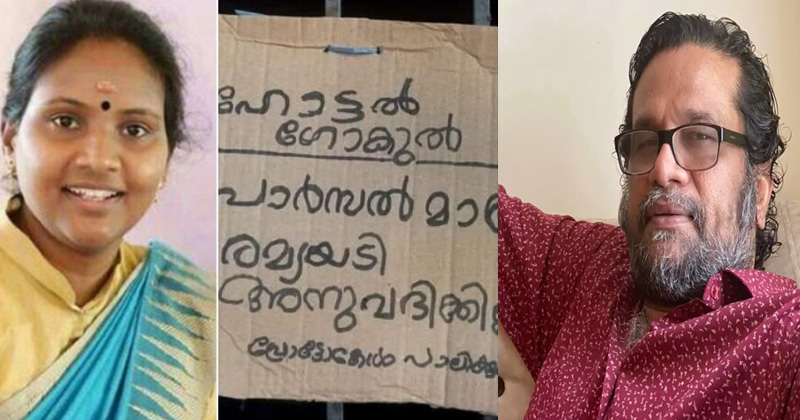 ഹോട്ടൽ
ഗോകുൽ
പാർസൽ മാ
രമ്യയടി
അനുവദിക്കി
പ്രോട്ടോകോൾ പാലിക്കു